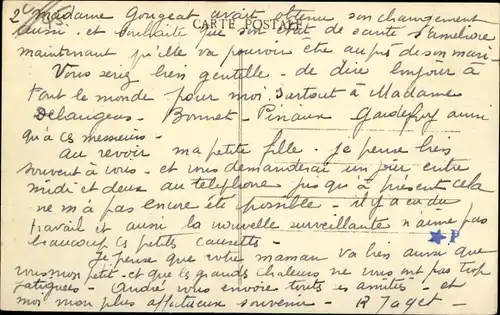 2
CARTE POSTALE
Madame Gougeat avait obtenu son changement
aussi - et souhaite que son état de santé s'améliore
maintenant qu'elle va pouvoir etre auprès de son mari -
Vous seriez bien gentille - de dire bonjour à
tout le monde pour moi. Surtout à Madame
Delangens - Bonnet - Pinaux Gaudefroy aussi
qu'à ces messieurs -
Au revoir ma petite fille - je pense bien
souvent à vous - et vous demanderai un jour entre
midi et deux au téléphone jusqu'à présent cela
ne m'a pas encore été possible - il y a eu du
travail et aussi la nouvelle surveillante n'aime pas
beaucoup ces petits causettes -
Je pense que votre maman va bien ainsi que
votre mon petit - et que ces grands chaleurs ne vous ont pas trop
fatiguées - André vous envoie toutes ses amitiés - et
moi mon plus affectueux souvenir - R Jaget -
P